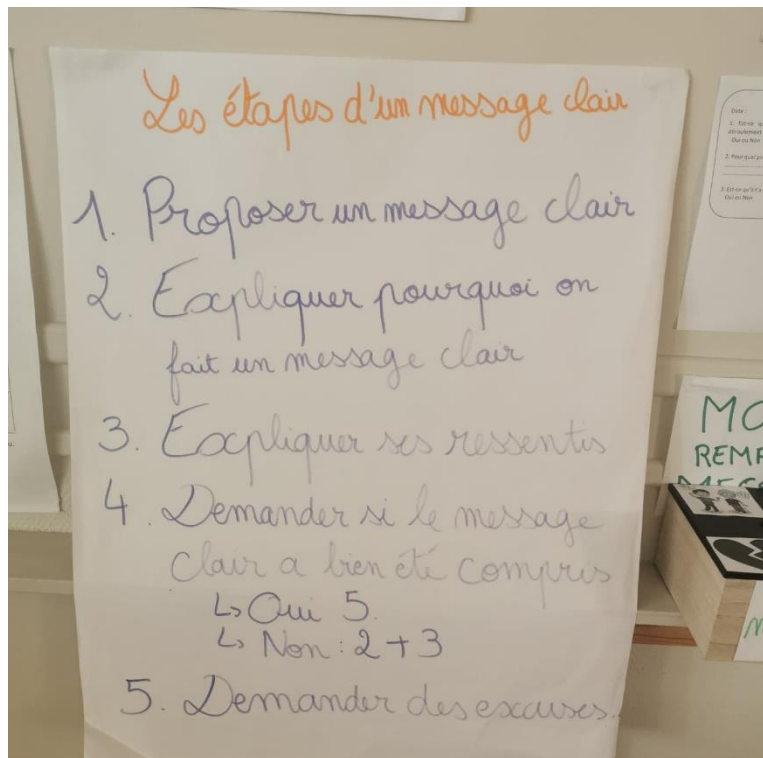 Les étapes d'un message clair
1. Proposer un message clair
2. Expliquer pourquoi on
fait un message clair
3. Expliquer ses ressentis
4. Demander si le message
clair a bien été compris
↳ Oui 5.
↳ Non : 2 + 3
5. Demander des excuses.
Date :
Oui ou Non
Oui ou Non
MO
REMP